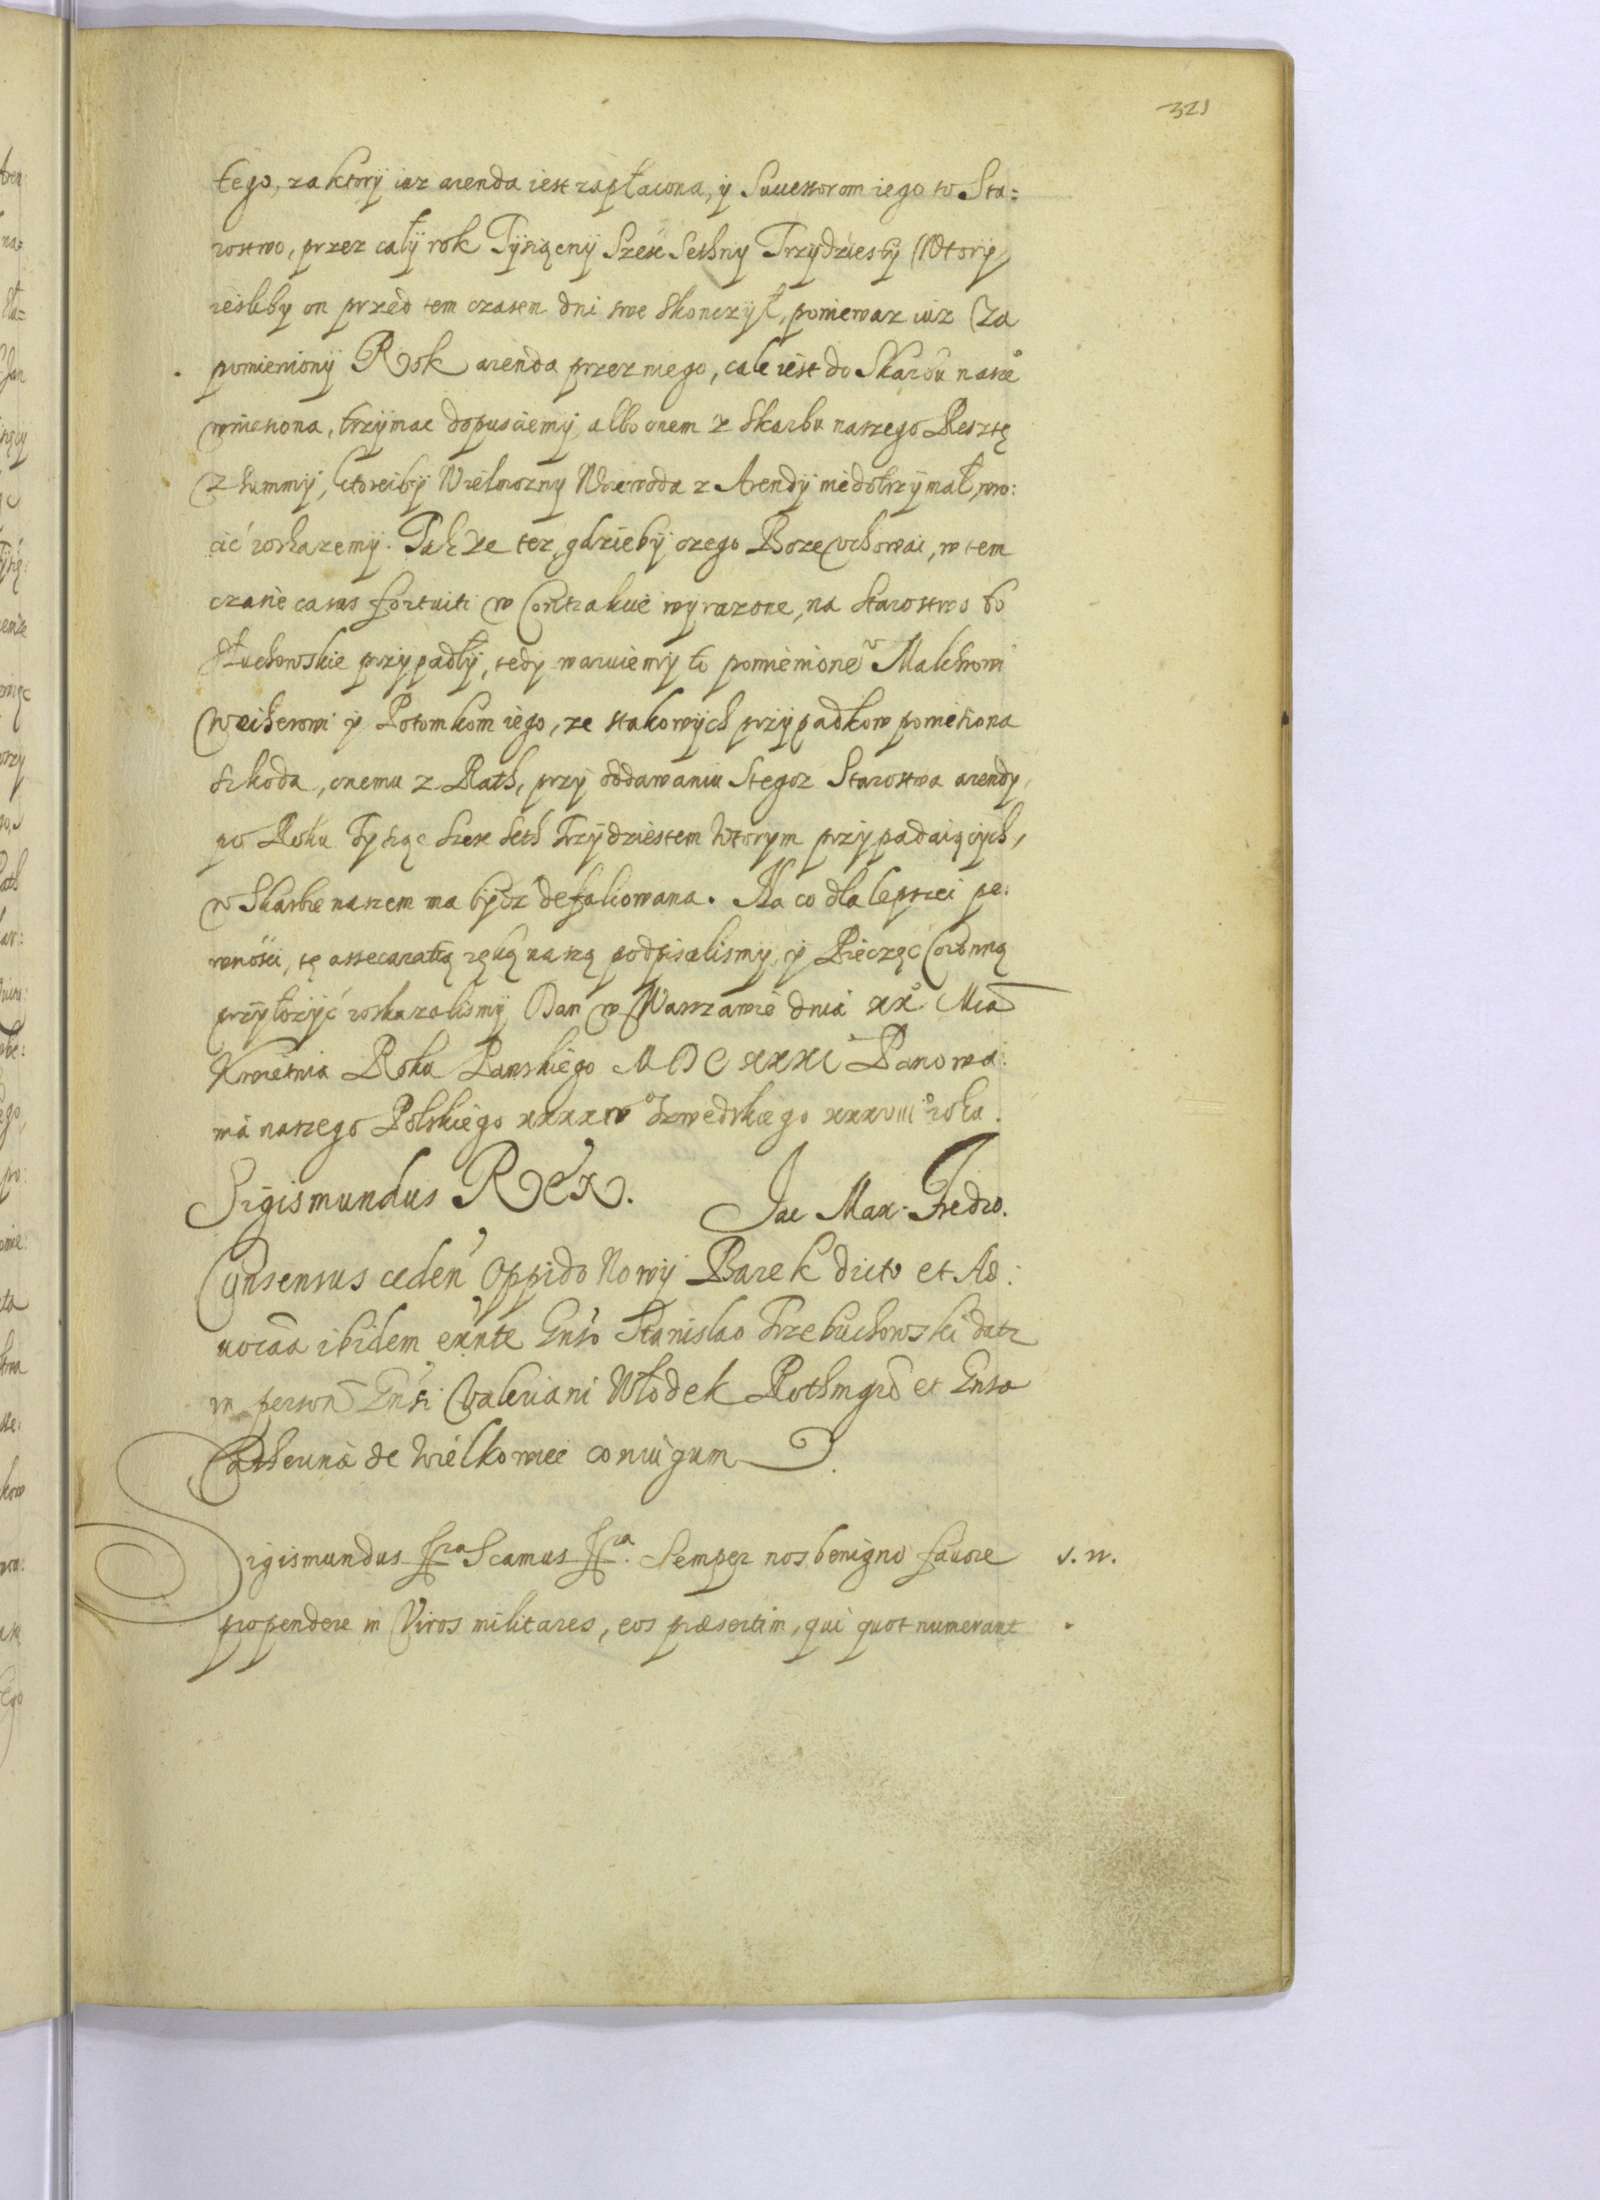 321
tego, za ktory iuz arenda iest zapłacona, y Successorom iego to Sta=
rostwo, przez cały rok Tysiącny Szesc Sethny Trzydziesty Wtory
iesliby on przed tem czasem dni swe skonczył, poniewaz iuz za
pomieniony Rok arenda przez niego, cale iest do Skarbu nasze°
wniesiona, trzymac dopusciemy albo onem z Skarbu naszego Resztę
z summy, ktoreiby Wielmozny Woiewoda z Arendy niedotrzymał, wro:
cić roskazemy. Takze tez, gdzieby czego Boze uchowai, w tem
czasie casus fortuiti w Contrakcie wyrazone, na Starostwo to
Człuchowskie przypadły, tedy waruiemy to pomienione Malchrowi
Weiherowi y Potomkom iego, ze stakowych przypadkow poniesiona
szkoda, onemu z Rath, przy oddawaniu Stegoz Starostwa arendy,
po Roku Tysiąc Szesc Seth Trzydziestem Wtorym przypadaiących,
w Skarbie naszem ma bydz defalcowana. Na co dla lepszei pe:
wnosci, tę assecuratią ręką naszą podpisalismy, y Pieczęć Coronną
przyłozyć roskazalismy Dan w Warszawie dnia xx° Mca
Kwietnia Roku Panskiego MDCXXXI Panowa:
nia naszego Polskiego xxxxiv° Szwedskiego xxxviii° roku.
Sigismundus Rex. Jac Max. Fredro.
Consensus ceden Oppido Nowy Barek dicto et Ad:
uocaa ibidem exnte Gnso Stanislao Trzebuchowski datr
in person Gnsi Valeriani Włodek Rothmgrd et Gnsa
Catherina de Wielkowiec coniugum
Sigismundus ffra Scamus ffra. Semper nos benigno fauore s. n.
propendere in Viros militares, eos præsertim, qui quot numerant